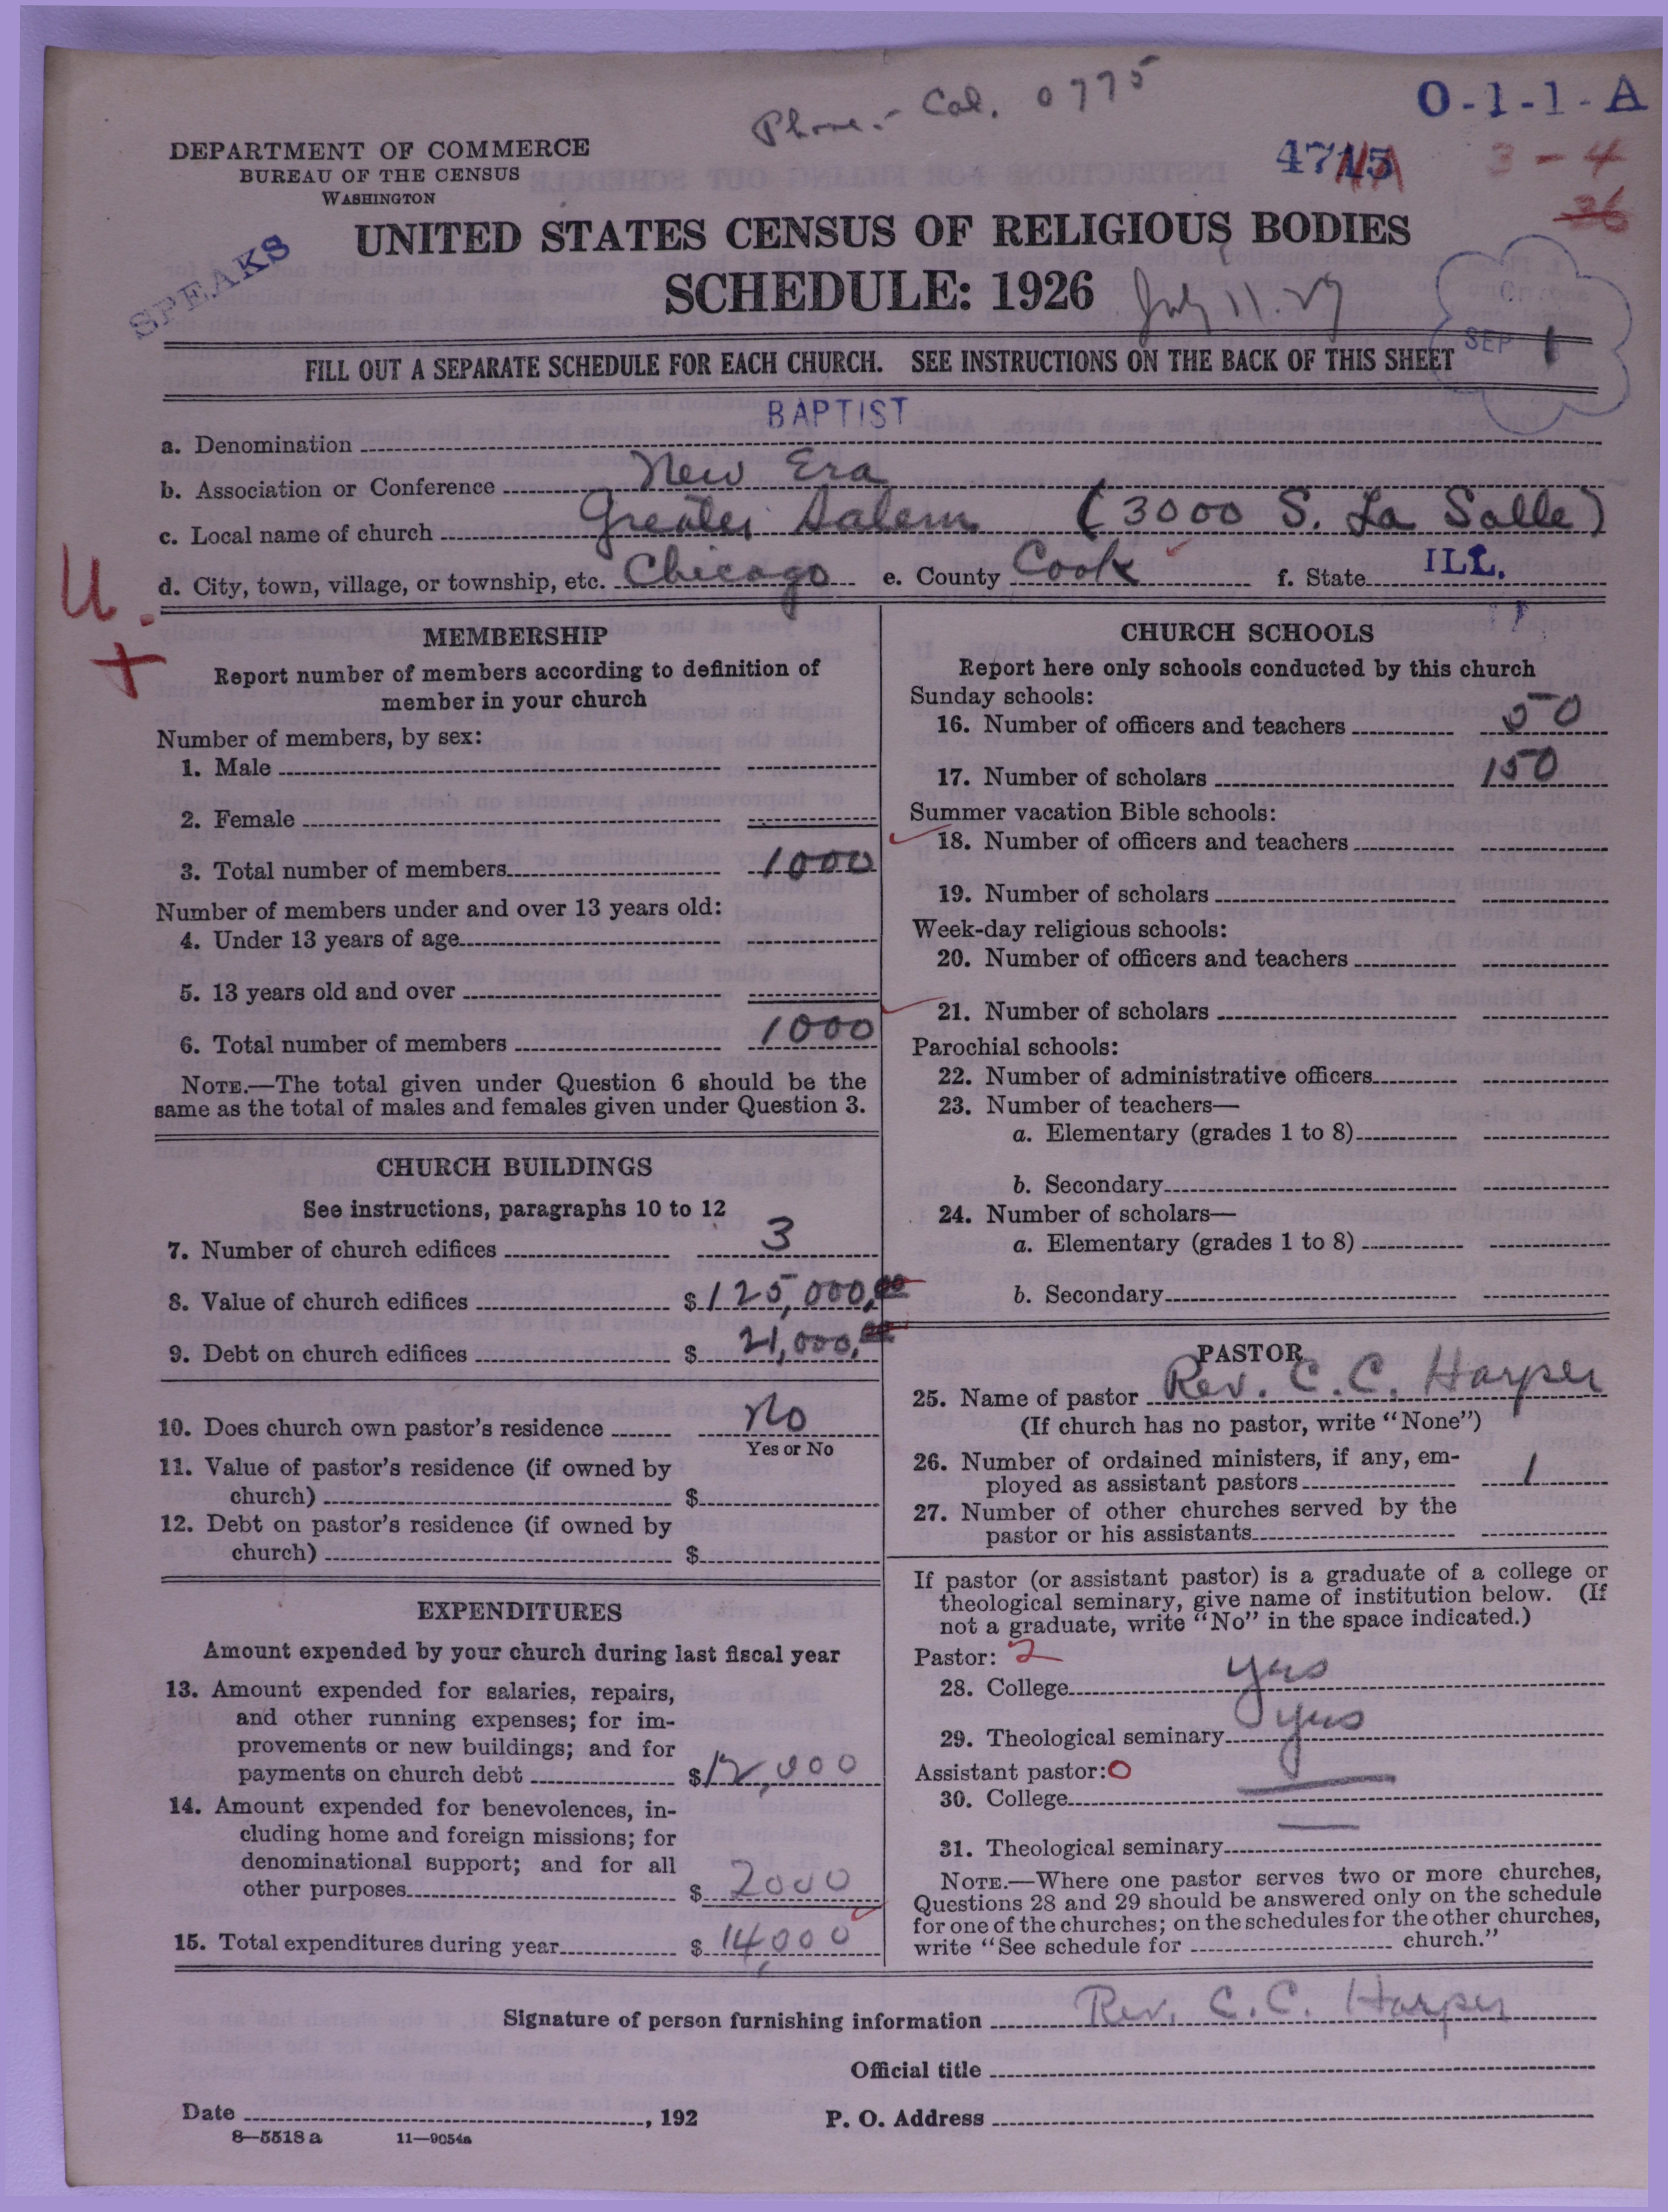 Phone - Cal. 0775
O-1-1-A
DEPARTMENT OF COMMERCE
BUREAU OF THE CENSUS
WASHINGTON
3 - 4
36
SPEAKS
UNITED STATES CENSUS OF RELIGIOUS BODIES
SCHEDULE: 1926
July 11. 27
SEP 1
FILL OUT A SEPARATE SCHEDULE FOR EACH CHURCH. SEE INSTRUCTIONS ON THE BACK OF THIS SHEET
a. Denomination BAPTIST
b. Association or Conference New Era
c. Local name of church Greater Salem (3000 S. La Salle)
d. City, town, village, or township, etc. Chicago e. County Cook f. State ILL.
U.
+
MEMBERSHIP
Report number of members according to definition of
member in your church
Number of members, by sex:
1. Male
2. Female
3. Total number of members 1000
Number of members under and over 13 years old:
4. Under 13 years of age
5. 13 years old and over
6. Total number of members 1000
NOTE.—The total given under Question 6 should be the
same as the total of males and females given under Question 3.
CHURCH BUILDINGS
See instructions, paragraphs 10 to 12
7. Number of church edifices 3
8. Value of church edifices $125,000.00
9. Debt on church edifices $21,000.00
10. Does church own pastor's residence No
Yes or No
11. Value of pastor's residence (if owned by
church) $
12. Debt on pastor's residence (if owned by
church) $
EXPENDITURES
Amount expended by your church during last fiscal year
13. Amount expended for salaries, repairs,
and other running expenses; for im-
provements or new buildings; and for
payments on church debt $12,000
14. Amount expended for benevolences, in-
cluding home and foreign missions; for
denominational support; and for all
other purposes $2000
15. Total expenditures during year $14,000
CHURCH SCHOOLS
Report here only schools conducted by this church
Sunday schools:
16. Number of officers and teachers 50
17. Number of scholars 150
Summer vacation Bible schools:
18. Number of officers and teachers
19. Number of scholars
Week-day religious schools:
20. Number of officers and teachers
21. Number of scholars
Parochial schools:
22. Number of administrative officers
23. Number of teachers—
a. Elementary (grades 1 to 8)
b. Secondary
24. Number of scholars—
a. Elementary (grades 1 to 8)
b. Secondary
PASTOR
25. Name of pastor Rev. C. C. Harper
(If church has no pastor, write "None")
26. Number of ordained ministers, if any, em-
ployed as assistant pastors 1
27. Number of other churches served by the
pastor or his assistants
If pastor (or assistant pastor) is a graduate of a college or
theological seminary, give name of institution below. (If
not a graduate, write "No" in the space indicated.)
Pastor: 2
28. College yes
29. Theological seminary yes
Assistant pastor: 0
30. College
31. Theological seminary
NOTE.—Where one pastor serves two or more churches,
Questions 28 and 29 should be answered only on the schedule
for one of the churches; on the schedules for the other churches,
write "See schedule for church."
Signature of person furnishing information Rev. C. C. Harper
Official title
Date , 192 P. O. Address
8—5518 a 11—9054a